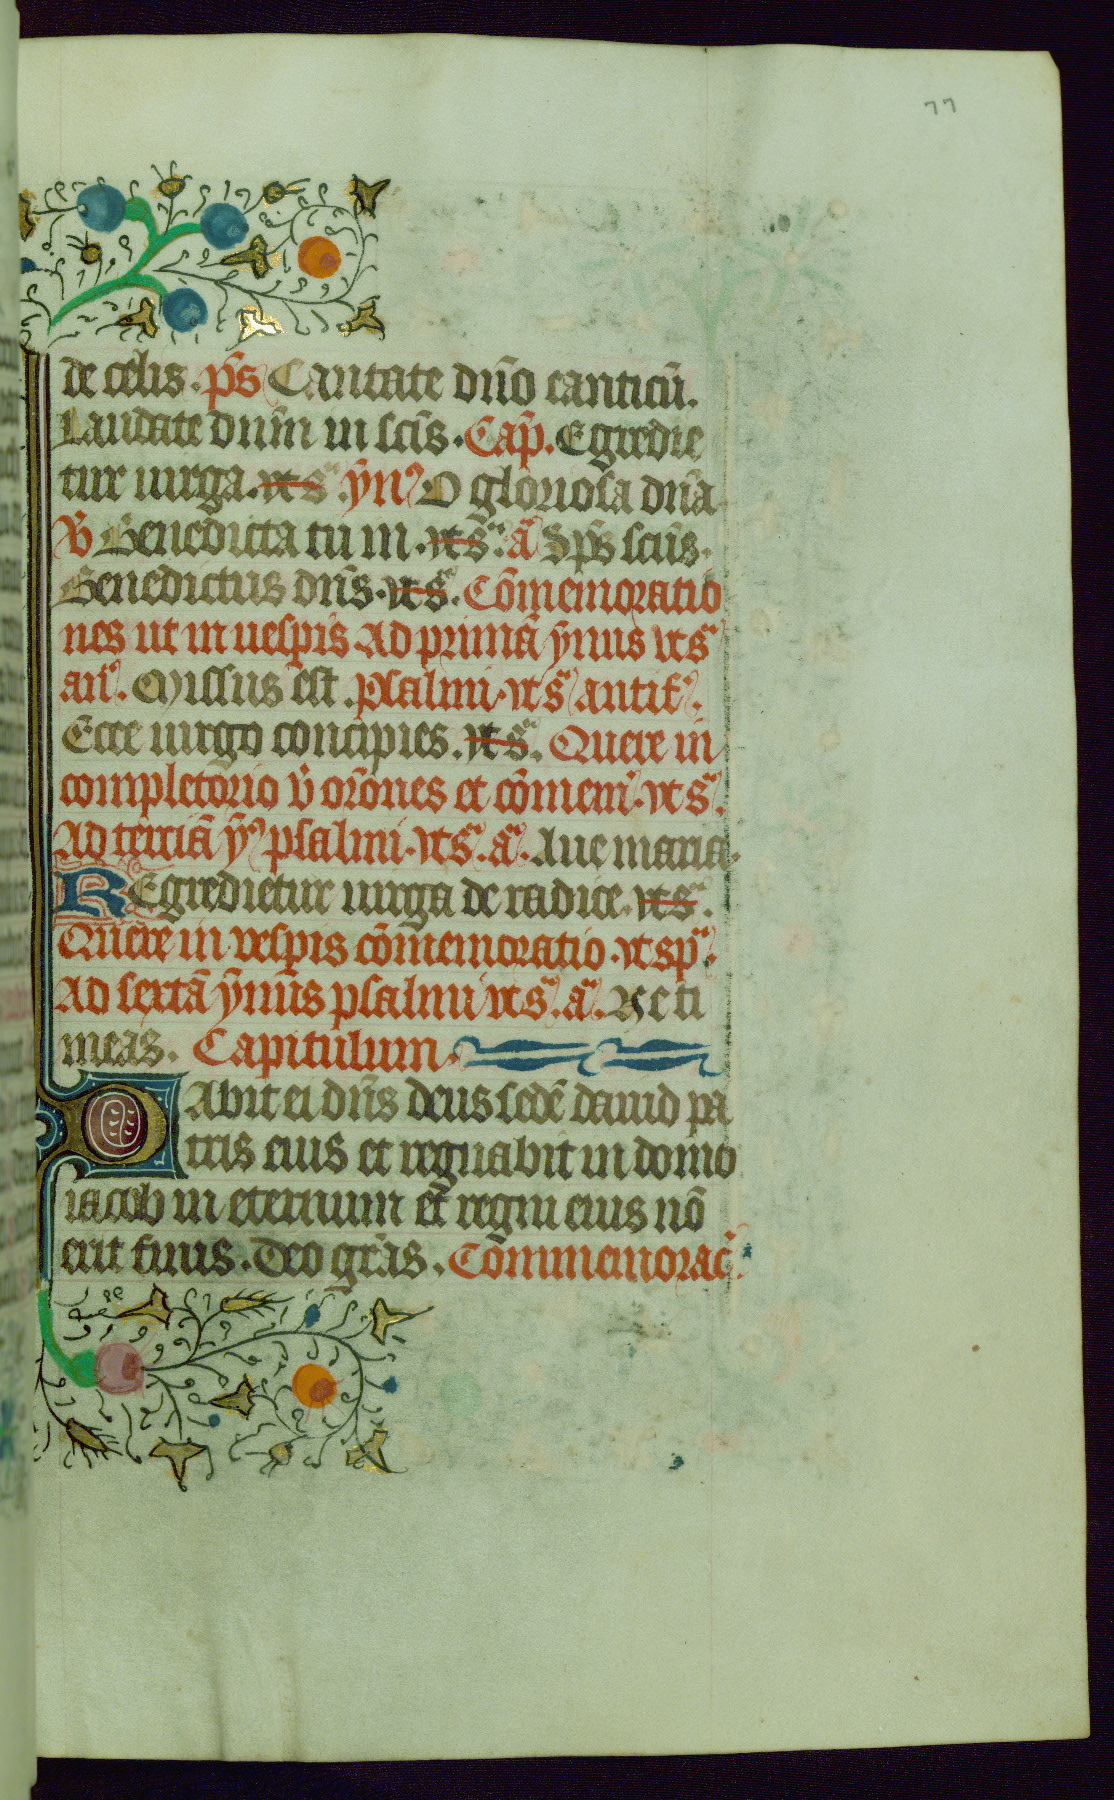 77
de celis. ps Cantate dño canticū.
Laudate dnm̄ in scīs. Cap̄. Egredie
tur uirga. vt sᵃ. ȳn̄ O gloriosa dn̄a
V̄ Benedicta tu in. vt sᵃ. ā Sp̄s scūs.
Benedictus dn̄s. vt sᵃ. Cōmemoratio
nes ut in uesp̄is Ad primā ȳmus vt sᵃ
añ. Missus est. psalmi. vt sᵃ antif̄.
Ecce uirgo concipies. vt sᵃ. Quere in
completorio v̄ orōnes et cōmem̄. vt sᵃ.
Ad terciā ȳ psalmi. vt sᵃ. ā. Aue maria.
REgredietur uirga de radice. vt sᵃ.
Quere in vesp̄is cōmemoratio. vt sp̄ᵃ.
Ad sextā ȳmūs psalmi vt sᵃ. ā. Ne ti
meas. Capitulum.
DAbit ei dn̄s deus sedē dauid pa
tris eius et regnabit in domo
iacob in eternum et regni eius nō
erit finis. Deo grās. Commemorac̄.